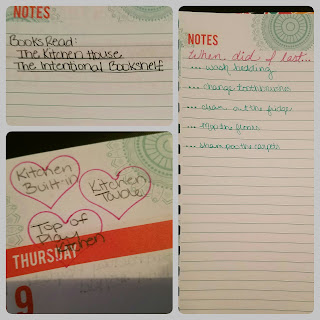 NOTES
Books Read:
The Kitchen House
The Intentional Bookshelf
Kitchen
Built-in
Kitchen
Table
Top of
Play
Kitchen
THURSDAY
9
NOTES
When did I last...
... wash bedding
... change toothbrushes
... clean out the fridge
... Mop the floors
... shampoo the carpets